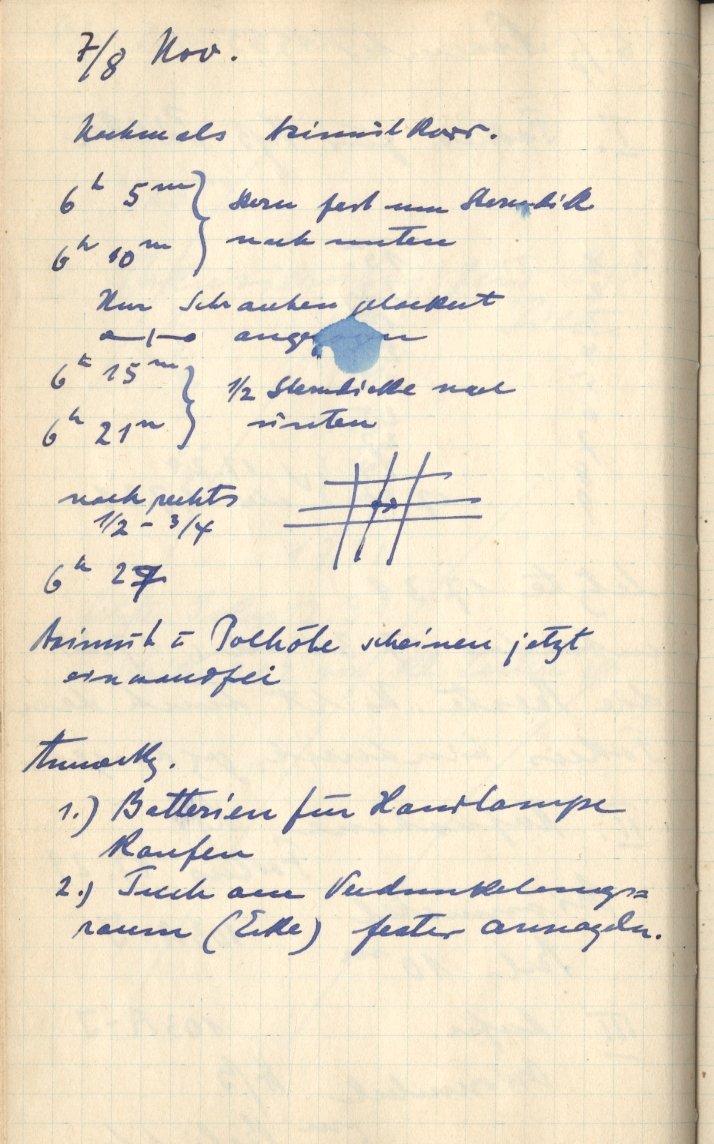 7/8 Nov.
Nochmals Azimutkorr.
6h 5m
Stern fast um Sterndick
6h 10m
nach unten
Nur Schrauben gelockert
angezogen
6h 15m
1/2 Sterndicke nach
6h 21m
unten
nach rechts
1/2 - 3/4
6h 27
Azimuth u Polhöhe scheinen jetzt
einwandfrei
Anmerkg.
1.) Batterien für Handlampe
kaufen
2.) Tuch am Verdunkelungs=
raum (Ecke) fester annageln.